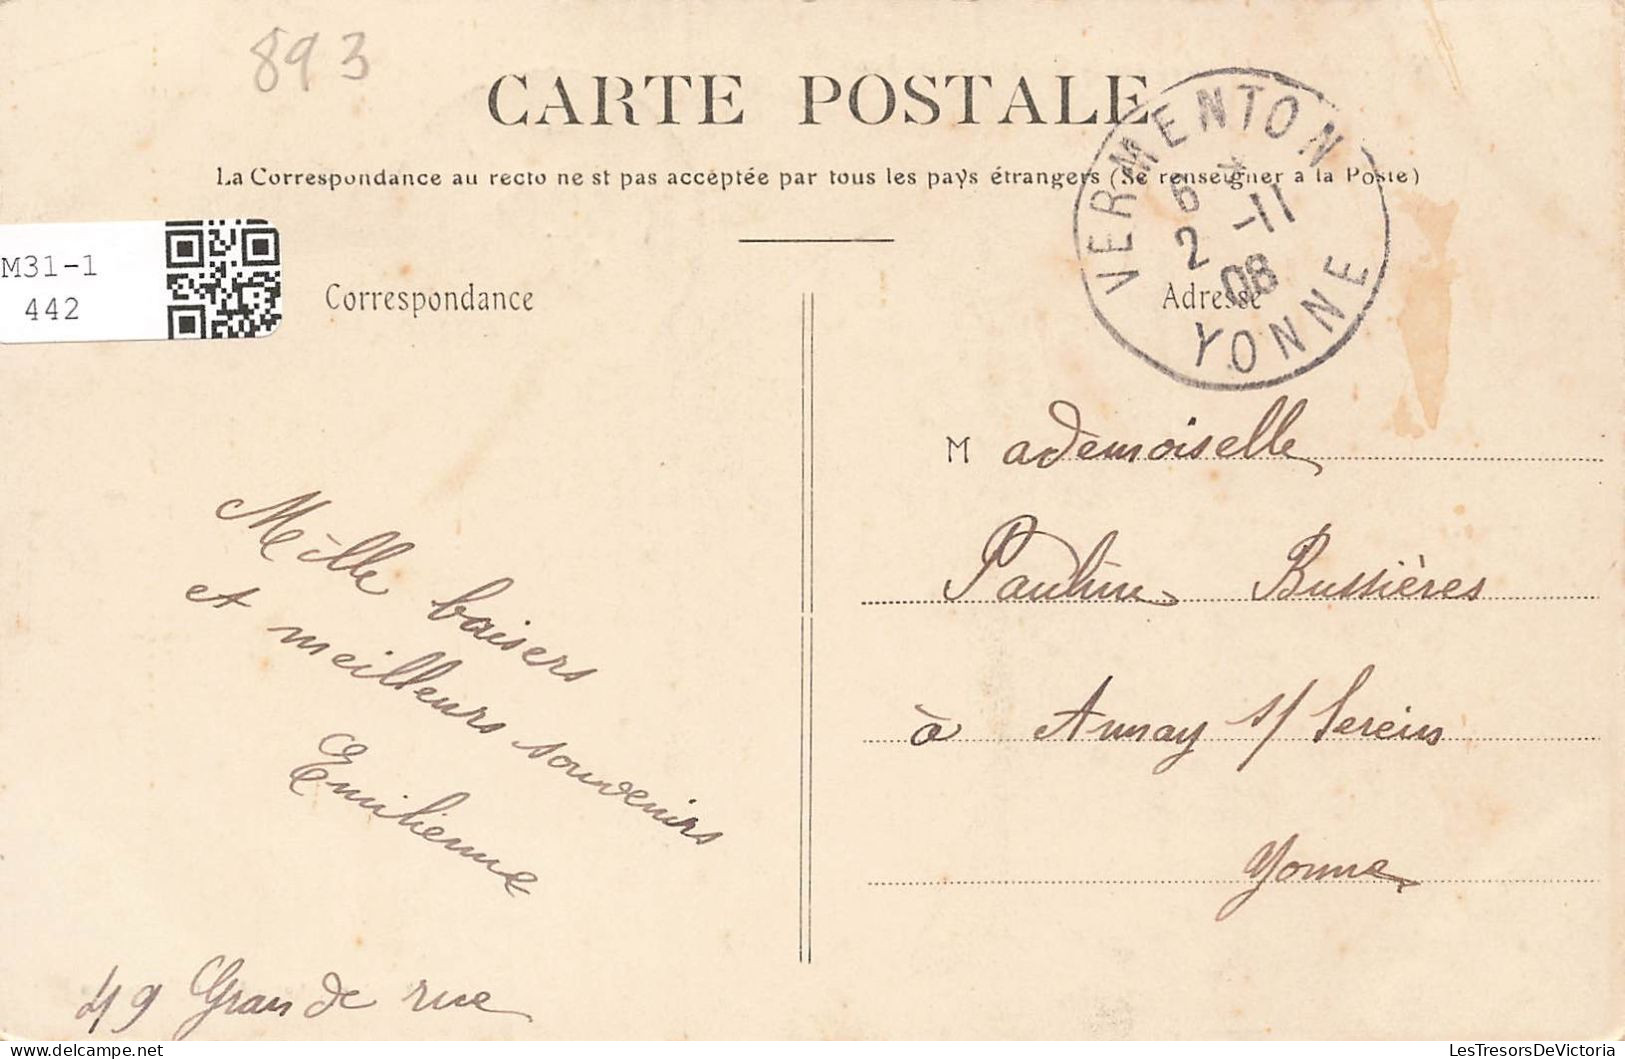 893
CARTE POSTALE
La Correspondance au recto ne st pas acceptée par tous les pays étrangers (Se renseigner a la Poste)
VERMENTON
6 *
2 -11
08
YONNE
M31-1
442
Correspondance
Adresse
Mille baisers
et meilleurs souvenirs
Emilienne
49 Grande rue
Mademoiselle
Pauline Bussières
à Annay s/ Serein
Yonne
www.LesTresorsDeVictoria.com